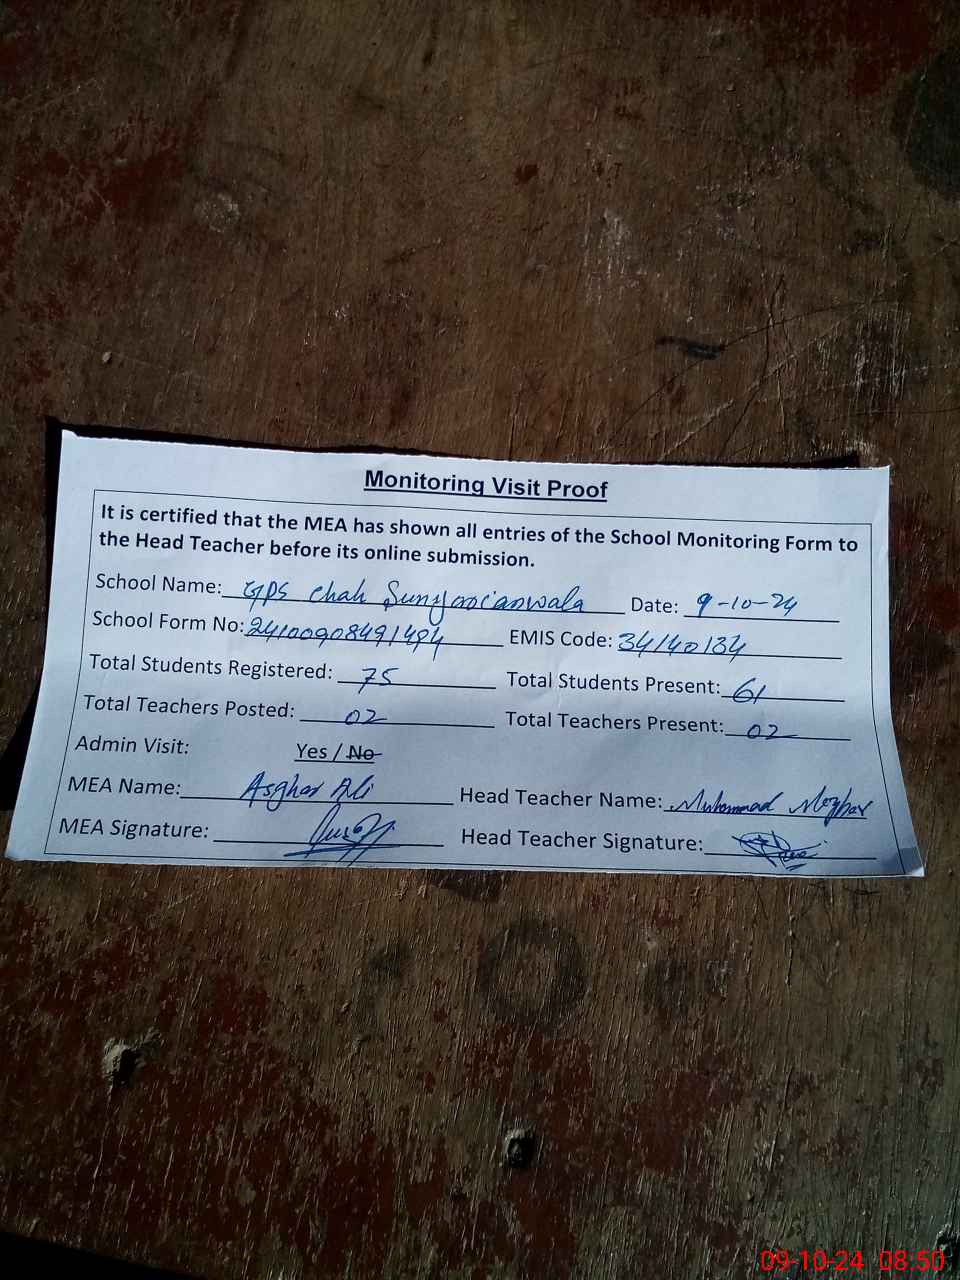 Monitoring Visit Proof
It is certified that the MEA has shown all entries of the School Monitoring Form to
the Head Teacher before its online submission.
School Name: GPS Chah Date: 9-10-24
School Form No: 24100908491494 EMIS Code: 34140134
Total Students Registered: 75 Total Students Present: 61
Total Teachers Posted: 02 Total Teachers Present: 02
Admin Visit: Yes / No
MEA Name: Asghar Ali Head Teacher Name: Muhammad Mazhar
MEA Signature: Head Teacher Signature:
09-10-24 08:50